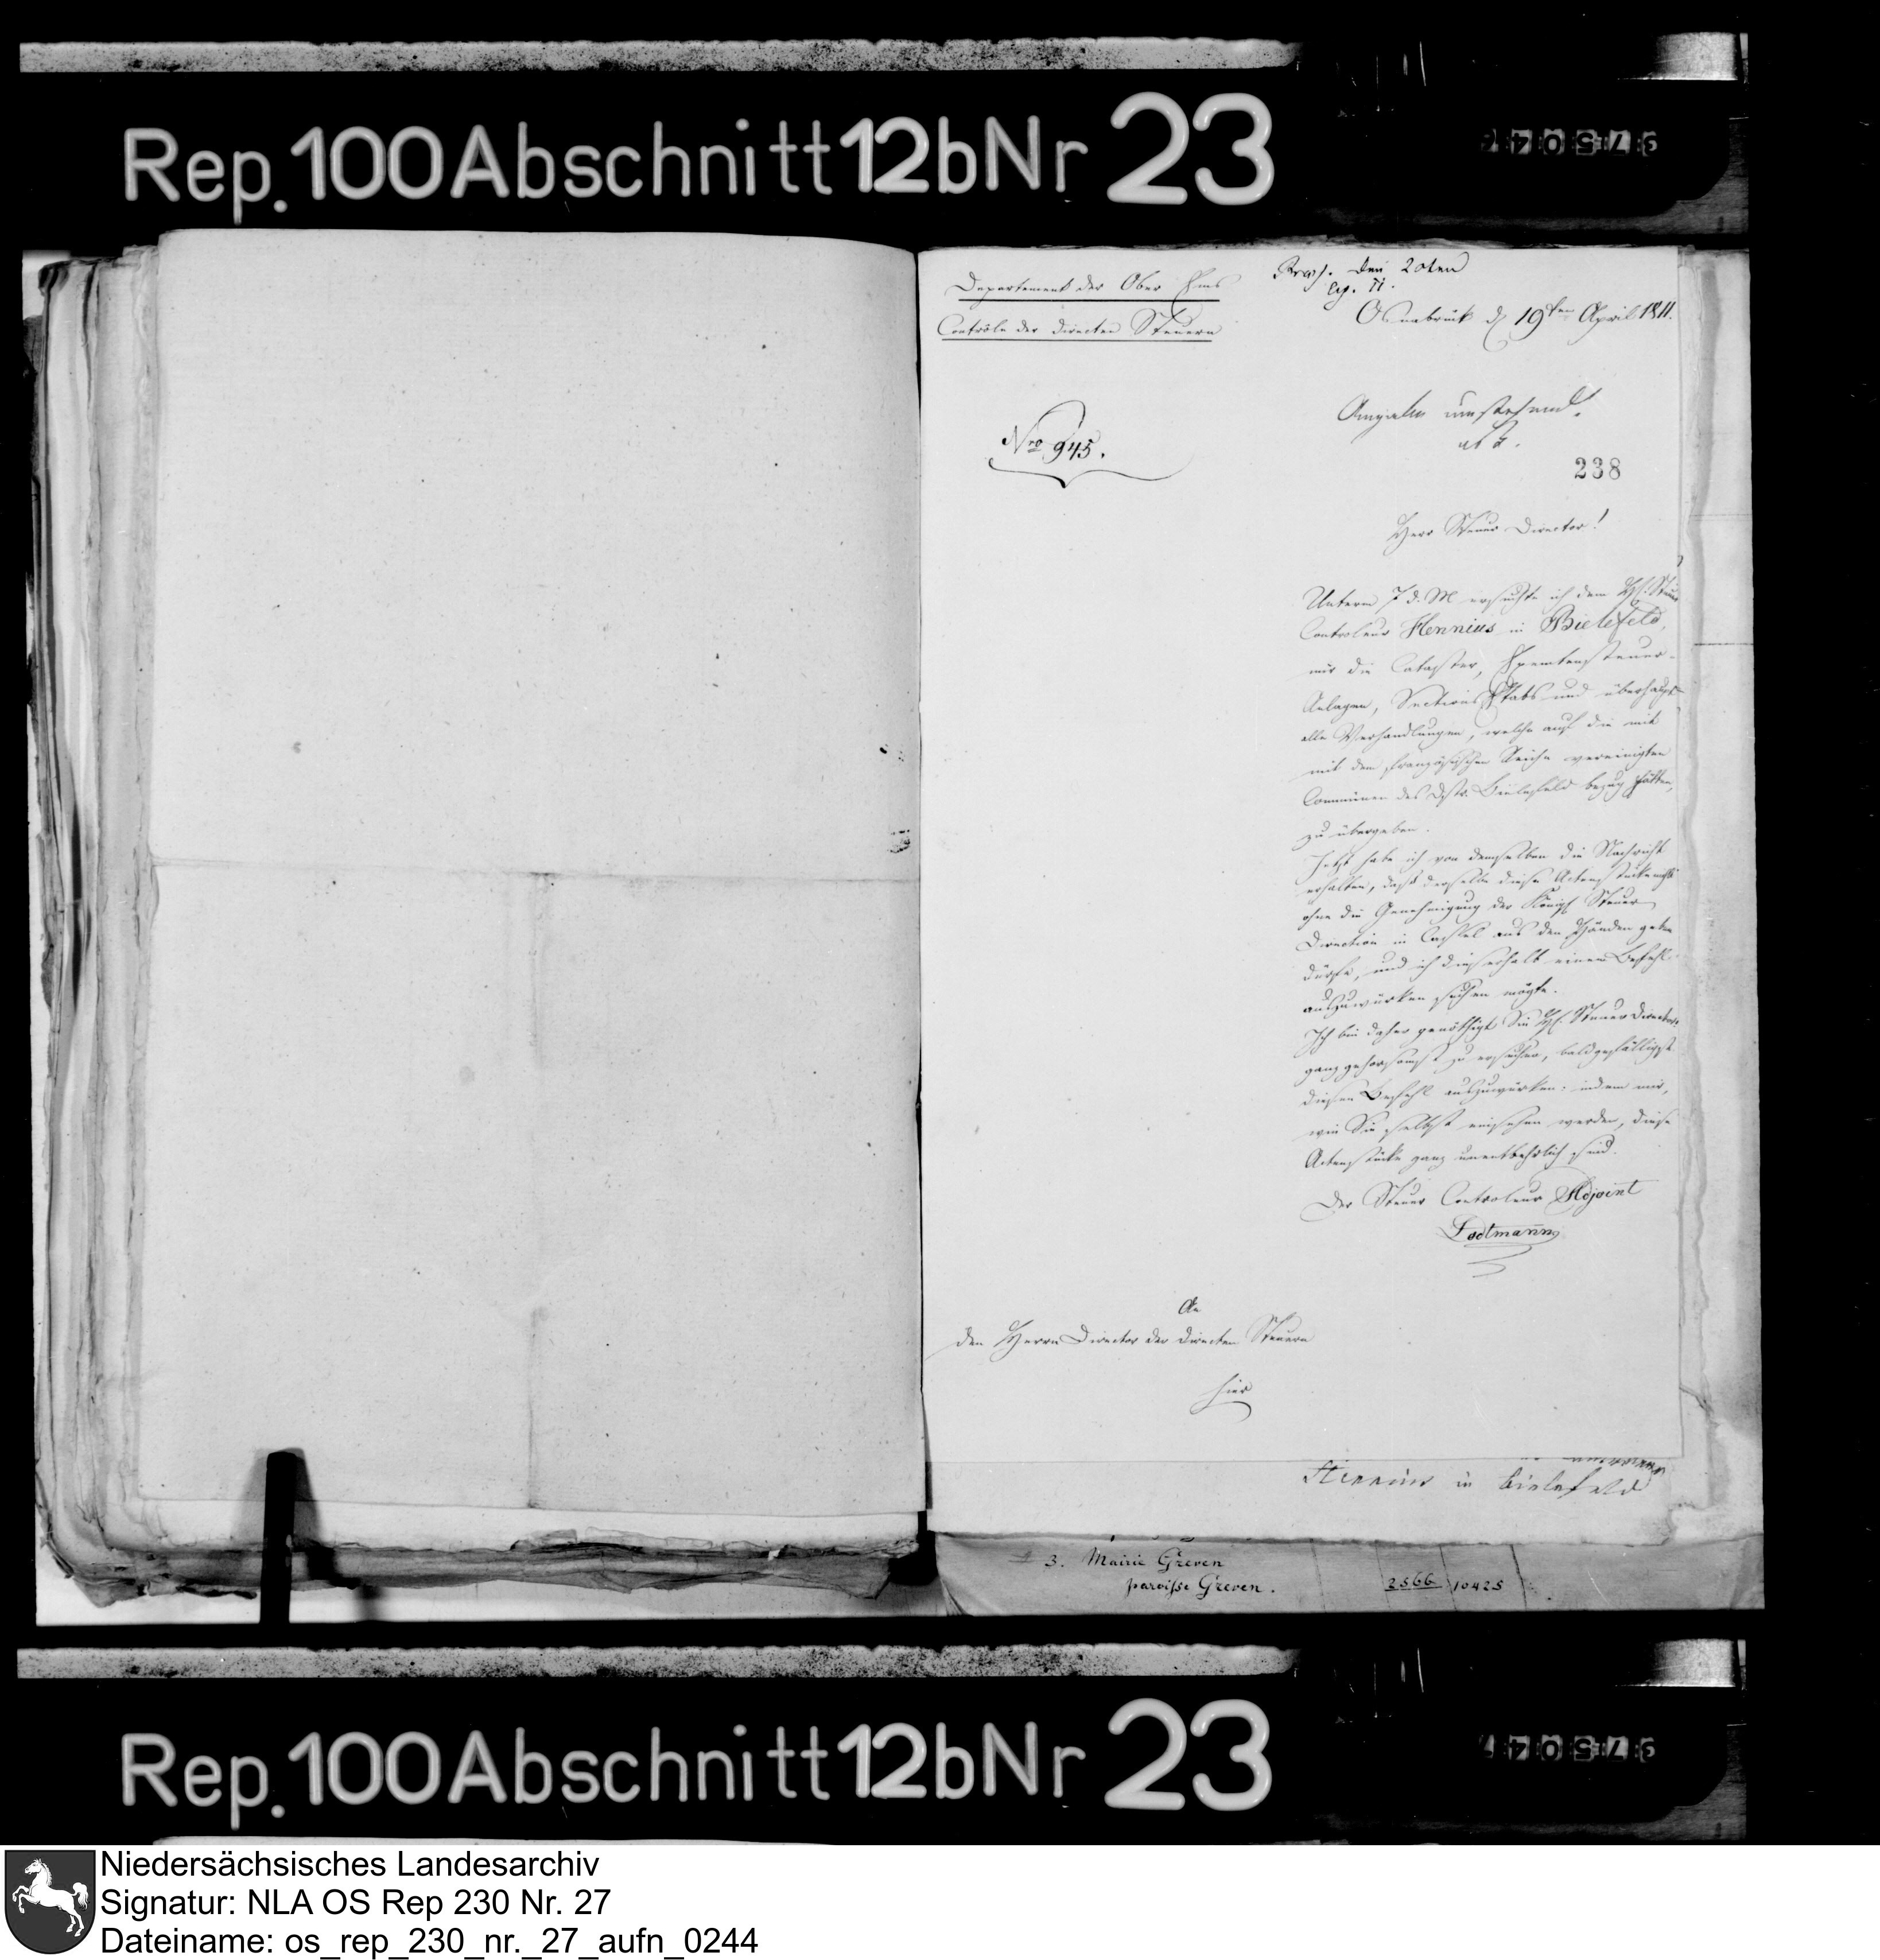 Rep. 100 Abschnitt 12b Nr 23
Departement der Ober Ems
Contrôle der directen Steuern
Præs. den 20ten
Osnabrück d 19ten April 1811.
Nro 945.
umstehend.
238
Herr Steuer Director!
Unterm 7 d. M ersuchte ich dem H. Steuer
Controleur Hennius in Bielefeld,
mir die Cataster,
Anlagen, Sections Etats und überhaupt
alle Verhandlungen, welche auf die mit
mit dem französischen Reiche vereinigten
Communen des Distr. Bielefeld bezug hätten,
zu übergeben.
Jetzt habe ich von demselben die Nachricht
erhalten, daß derselbe diese Actenstücke nicht
ohne die Genehmigung der Königl Steuer
Direction in Cassel aus den Händen geben
dürfe, und ich dieserhalb einen Befehl
auszuwürken suchen mögte.
Ich bin daher genöthigt Sie H. Steuer Director
ganz gehorsamst zu ersuchen, baldgefälligst
diesen Befehl auszuwürken; indem mir,
wie Sie selbst einsehen werden, diese
Actenstücke ganz unentbehrlich sind.
Der Steuer Controleur Adjoint
Lodtmann
An
den Herrn Director der directen Steuern
hier
Hennius in Bielefeld
3. Mairie Greven
paroisse Greven. 2566 10425
Rep. 100 Abschnitt 12b Nr 23
Niedersächsisches Landesarchiv
Signatur: NLA OS Rep 230 Nr. 27
Dateiname: os_rep_230_nr._27_aufn_0244